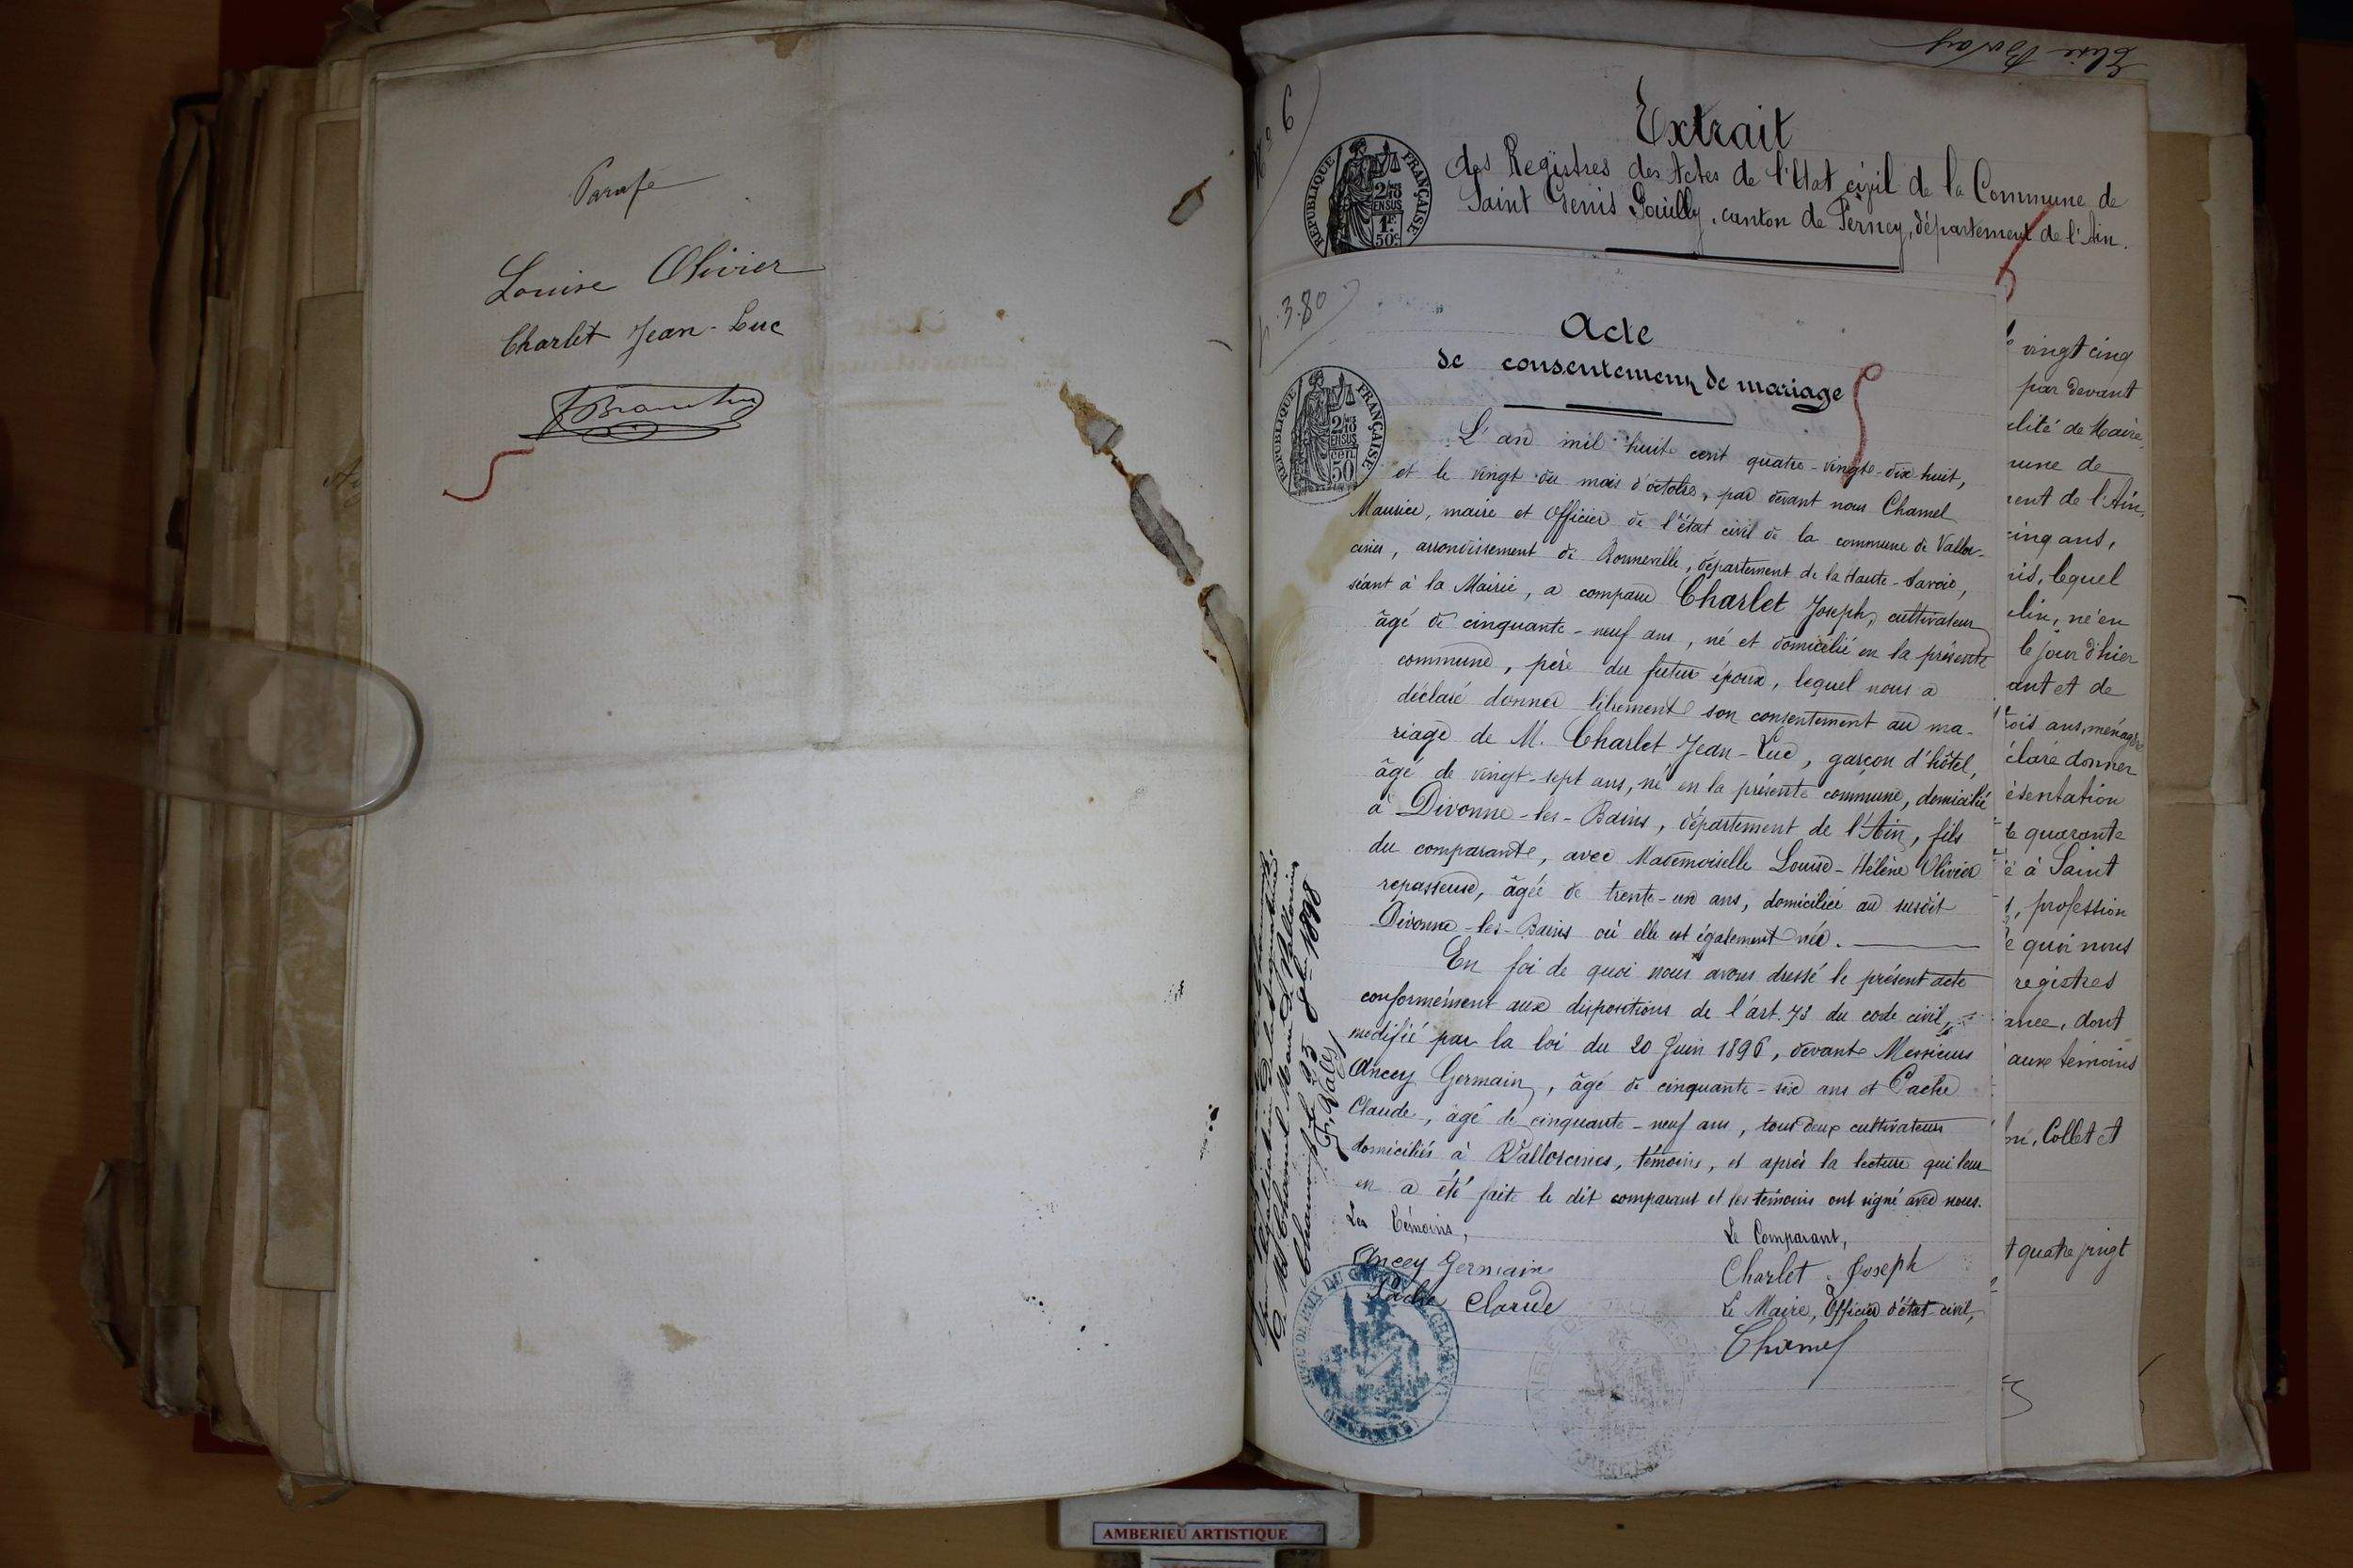 Parafé
Louise Olivier
Charlet Jean-Luc
Elise
N° 6
Extrait
des Registres des Actes de l'Etat civil de la Commune de
Saint Genis Pouilly, canton de Ferney, département de l'Ain.
REPUBLIQUE FRANÇAISE
1F.
50c
380
Acte
de consentement de mariage
REPUBLIQUE FRANÇAISE
cen
50
L'an mil huit cent quatre-vingt-dix huit,
et le vingt du mois d'octobre, par devant nous Chamel
Maurice, maire et Officier de l'état civil de la commune de Vallor-
cine, arrondissement de Bonneville, département de la Haute-Savoie,
séant à la Mairie, a comparu Charlet Joseph, cultivateur
âgé de cinquante-neuf ans, né et domicilié en la présente
commune, père du futur époux, lequel nous a
déclaré donner librement son consentement au ma-
riage de M. Charlet Jean-Luc, garçon d'hôtel,
âgé de vingt-sept ans, né en la présente commune, domicilié
à Divonne-les-Bains, département de l'Ain, fils
du comparant, avec Mademoiselle Louise-Hélène Olivier
repasseuse, âgée de trente-un ans, domiciliée au susdit
Divonne-les-Bains où elle est également née.
En foi de quoi nous avons dressé le présent acte
conformément aux dispositions de l'art. 73 du code civil,
modifié par la loi du 20 Juin 1896, devant Messieurs
Ancey Germain, âgé de cinquante-six ans et Pache
Claude, âgé de cinquante-neuf ans, tous deux cultivateurs
domiciliés à Vallorcine, témoins, et après la lecture qui leur
en a été faite le dit comparant et les témoins ont signé avec nous.
Les Témoins,
Ancey Germain
Pache Claude
Le Comparant,
Charlet Joseph
Le Maire, Officier d'état civil,
Chamel
de la signature
de Mr Chamel Maire de Vallorcine
1898
vingt cinq
par devant
lité de Maire,
mune de
ment de l'Ain,
cinq ans,
nis, lequel
lin, né en
le jour d'hier
ant et de
rois ans, ménagère
éclaré donner
ésentation
te quarante
é à Saint
s, profession
e quoi nous
registres
ance, dont
aux témoins
Collet et
t quatre vingt
AMBERIEU ARTISTIQUE